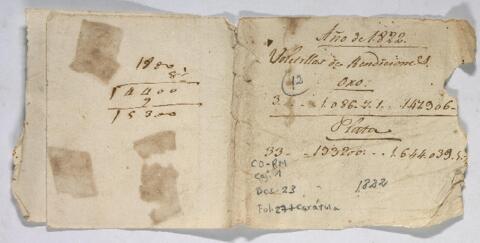 1800
8
14400
9
15300
Año de 1822.
Voletillas de Rendiciones.
12
Oro:
3 - - 1.086.7.1. - - 142906 -
Plata
33 - - 193200. - - 1.644.039.5.
CO-RM
Caj. 1
Doc. 23
1822
Fol: 27 + carátula